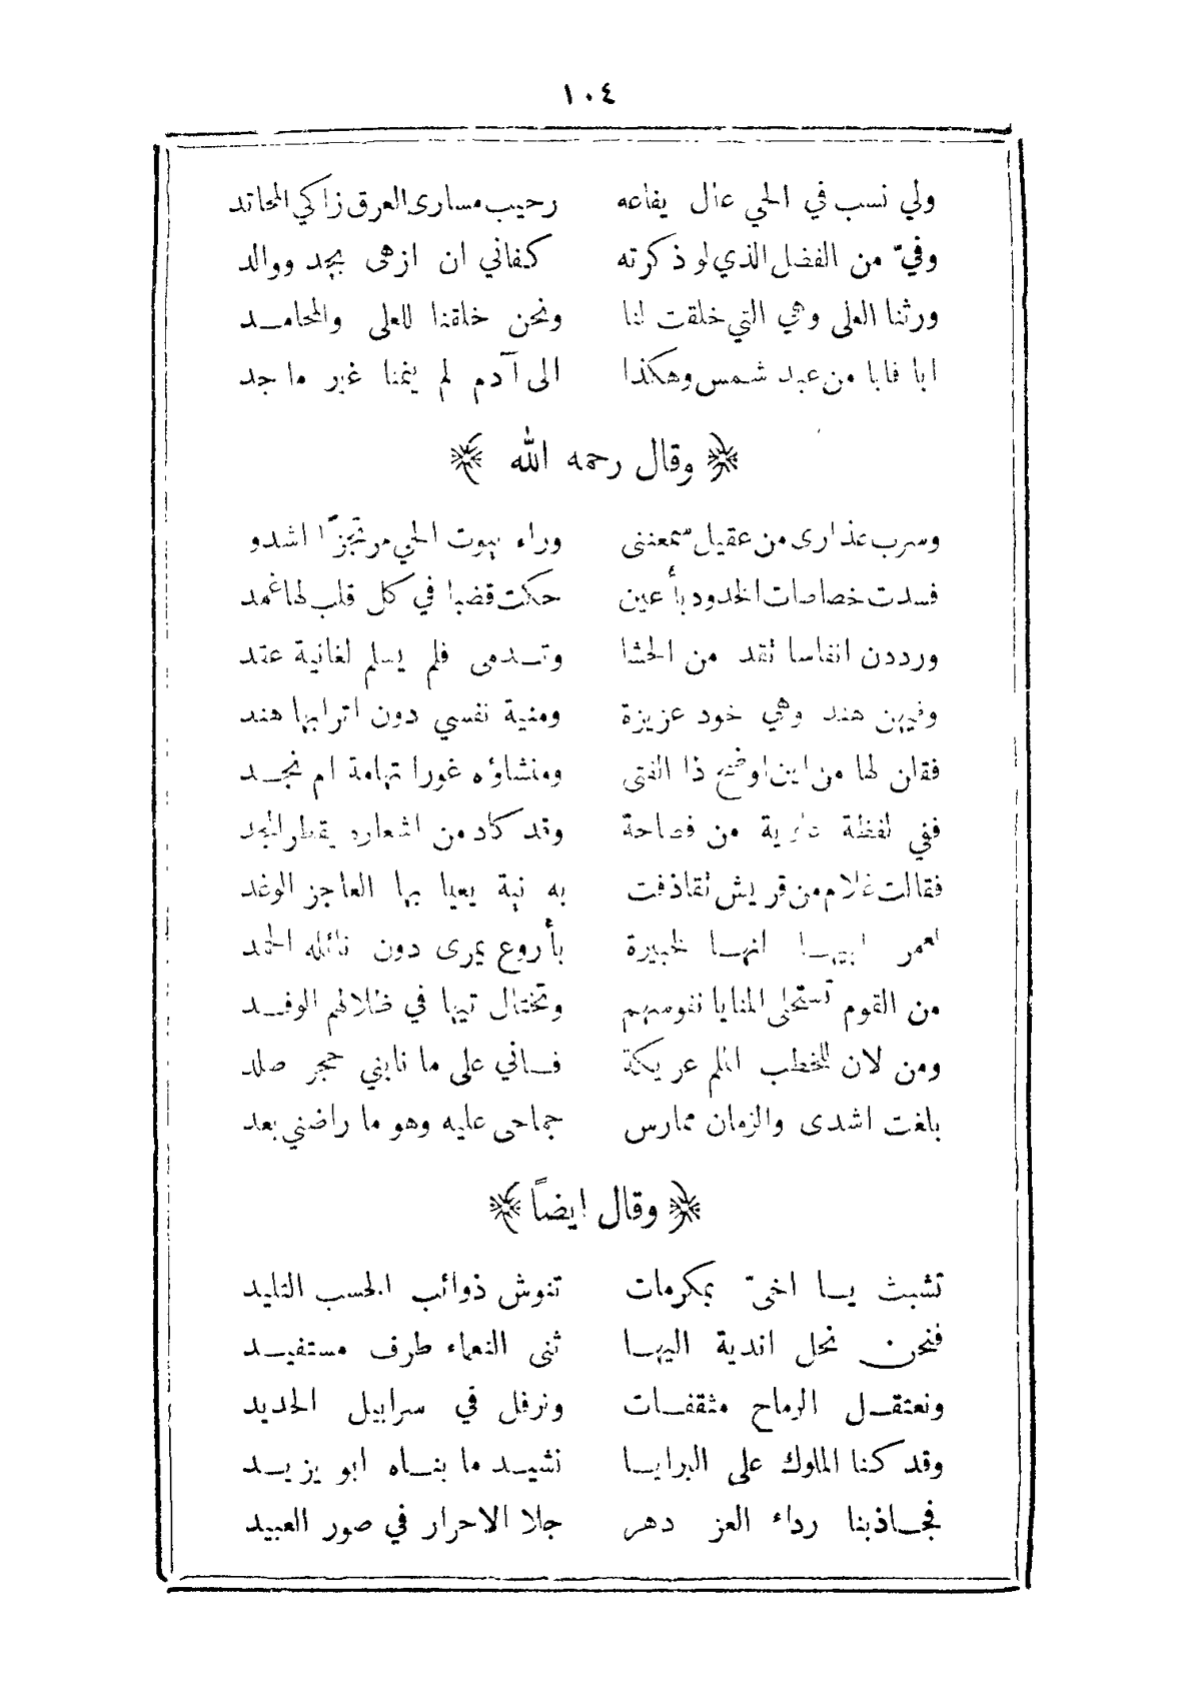 ١٠٤
ولي نسب في الحي عال يفاعه رحيب مسارى العرق زاكي المحاتد
وفيّ من الفضل الذي لو ذكرته كفاني ان ازهى بجد ووالد
ورثنا العلى وهي التي خلقت لنا ونحن خلقنا للعلى والمحامد
ابا فابا من عبد شمس وهكذا الى آدم لم ينمنا غير ماجد
﴿ وقال رحمه الله ﴾
وسرب عذارى من عقيل سمعننى وراء بيوت الحي مرتجزًا اشدو
فسدت خصاصات الخدود بأعين حكت قضبا في كل قلب لها غمد
ورددن انفاسا تقد من الحشا وتدمى فلم يسلم لغانية عقد
وفيهن هند وهي خود عزيزة ومنية نفسي دون اترابها هند
فقلن لها من اين اوضح ذا الفتى ومنشاؤه غورا تهامة ام نجد
ففي لفظة علوية من فصاحة وقد كاد من اشعاره يقطر المجد
فقالت غلام من قريش تقاذفت به نية يعيا بها العاجز الوغد
لعمر ابيها انها لخبيرة بأروع يمرى دون نائله الحمد
من القوم تستحلى المنايا نفوسهم وتختال تيها في ظلالهم الوفد
ومن لان للخطب الملم عريكة فانى على ما نابني حجر صلد
بلغت اشدى والزمان ممارس جماحى عليه وهو ما راضني بعد
﴿ وقال ايضاً ﴾
تشبث يا اخيّ بمكرمات تنوش ذوائب الحسب التليد
فنحن نحل اندية اليها ثنى النعماء طرف مستفيد
ونعتقل الرماح مثقفات ونرفل في سرابيل الحديد
وقد كنا الملوك على البرايا نشيد ما بناه ابو يزيد
فجاذبنا رداء العز دهر جلا الاحرار في صور العبيد